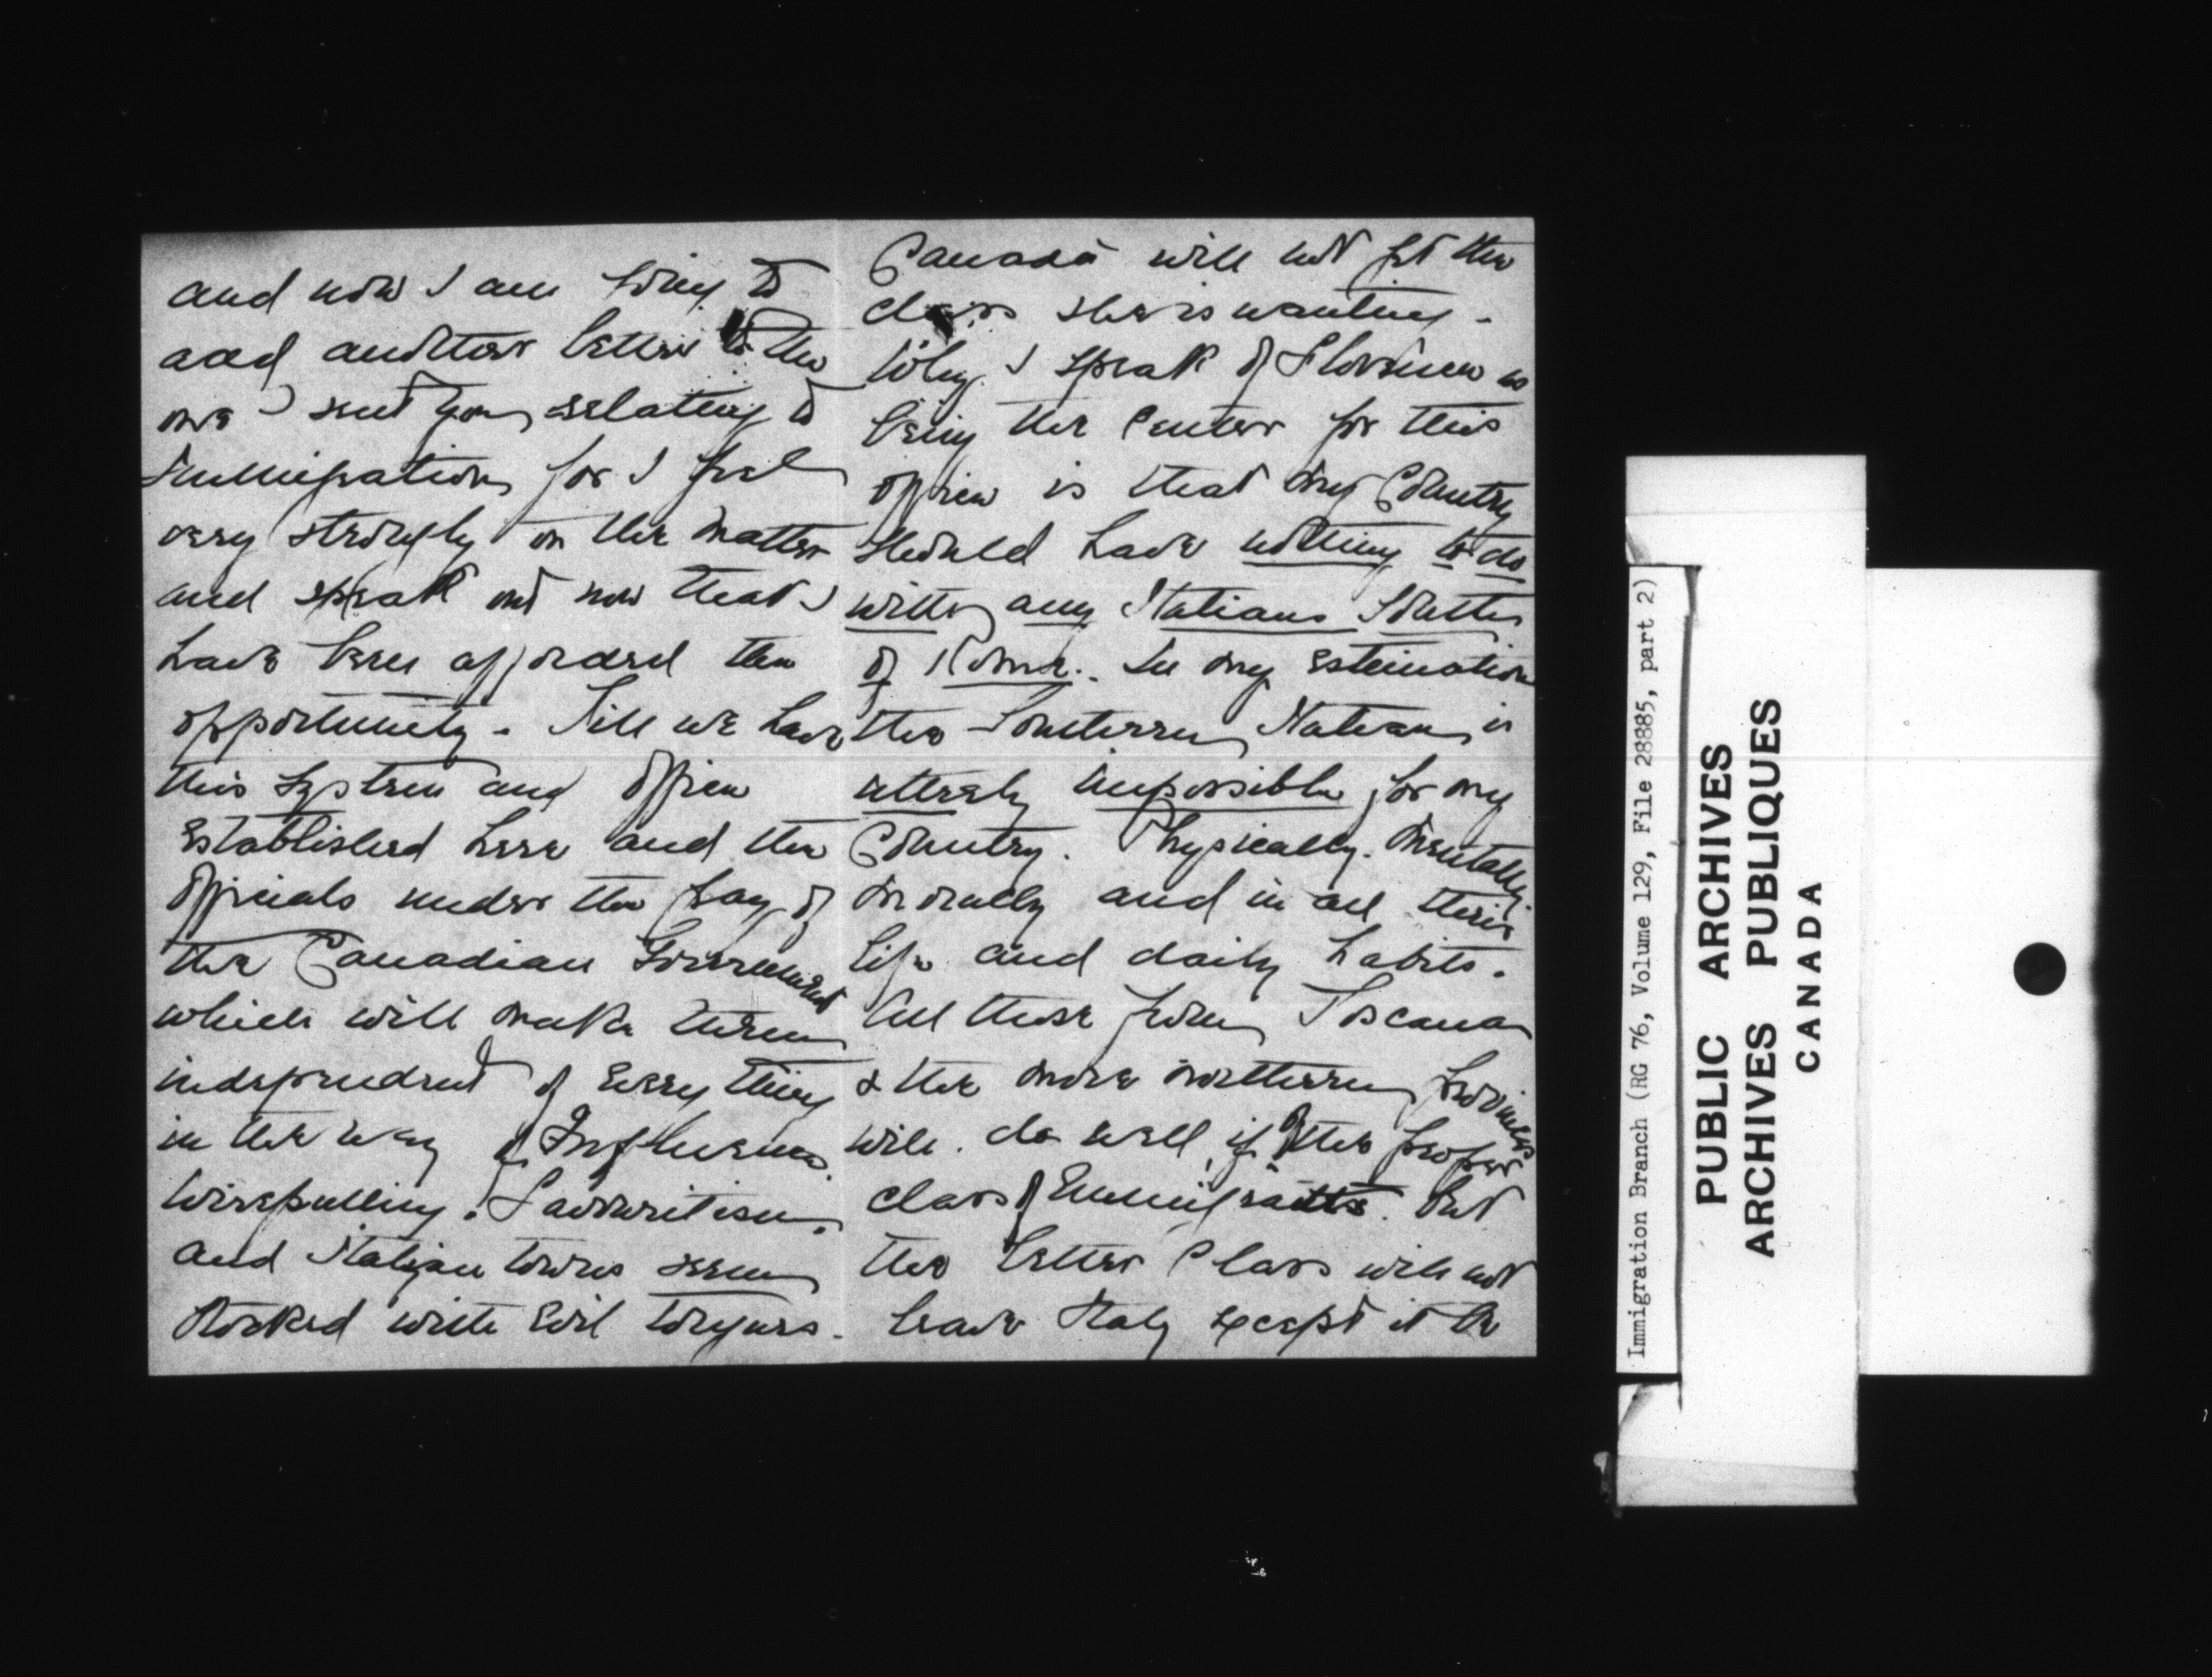 and now I am going to
add another letter to the
one I sent you relating to
Emmigration for I feel
very strongly on the matter
and speak out now that I
have been afforded the
opportunity. Till we have
this System and office
Established here and the
officials under the pay of
the Canadian Government
which will make them
independent of Every thing
in the way of Influence.
Wirepulling. Favouritism.
and Italian towns seem
stocked with Evil tongues.
Canada will not get the
class she is wanting.
Why I speak of Florence as
being the Center for this
office is that my Country
should have nothing to do
with any Italians South
of Rome. In my Estimation
the Southern Italian is
utterly impossible for my
Country. Physically. Mentally.
Morally and in all their
life and daily habits.
All those from Toscana
& the more northern Provinces
will do well, if the proper
class of Emmigrants. But
the better Class will not
leave Italy except it be
Immigration Branch (RG 76, Volume 129, File 28885, part 2)
PUBLIC ARCHIVES
ARCHIVES PUBLIQUES
CANADA